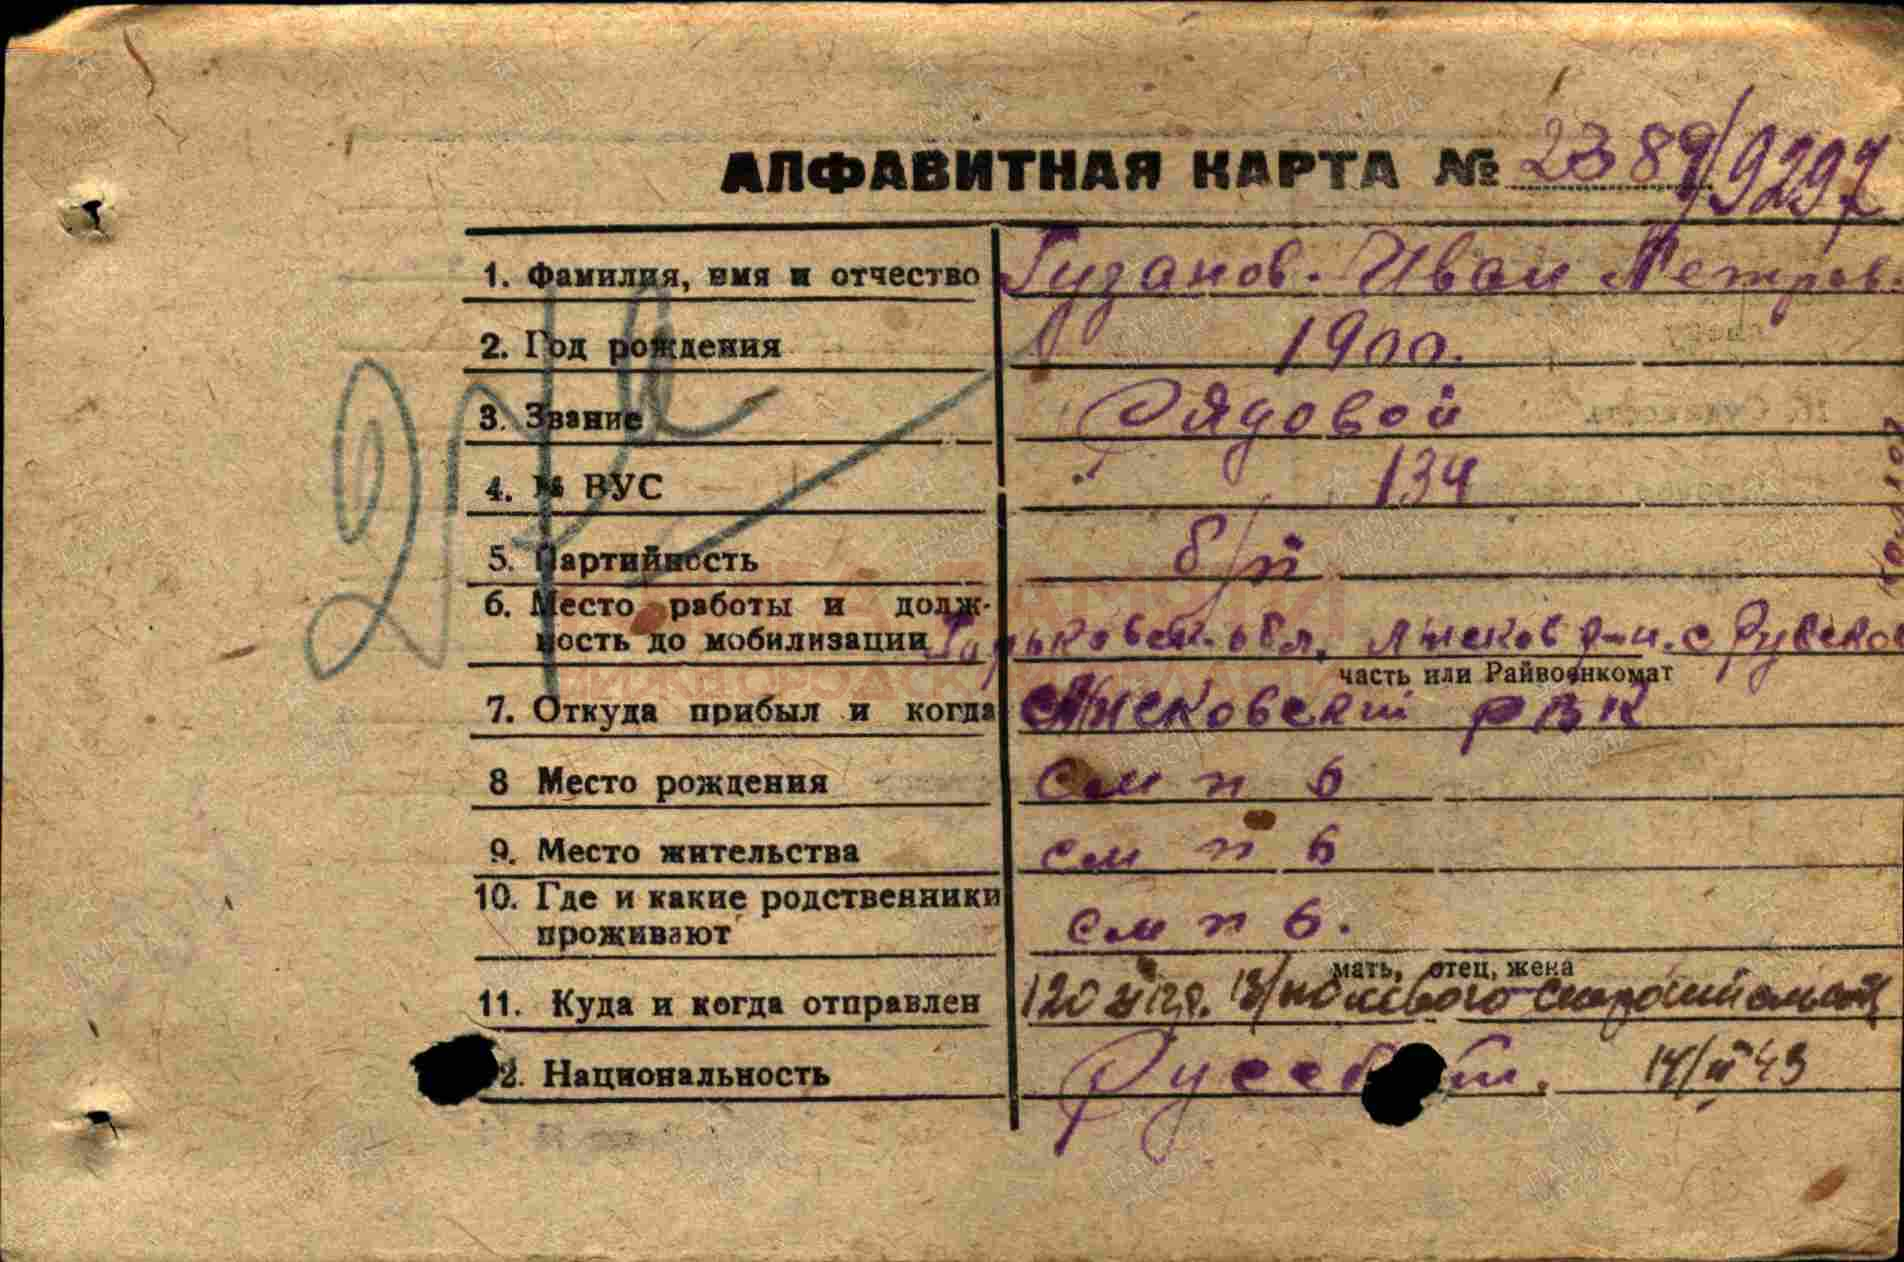 АЛФАВИТНАЯ КАРТА № 2389/9297
1. Фамилия, имя и отчество Гузанов Иван Петров.
2. Год рождения 1900.
3. Звание Рядовой
4. № ВУС 134
5. Партийность б/п
6. Место работы и долж-
ность до мобилизации Горьковск. обл. Лысков р-н. с
часть или Райвоенкомат
7. Откуда прибыл и когда Лысковский РВК
8 Место рождения см п 6
9. Место жительства см п 6
10. Где и какие родственники
проживают см п 6.
мать, отец, жена
11. Куда и когда отправлен 120
12. Национальность Русский. 14/II 43
КНИГА ПАМЯТИ
НИЖЕГОРОДСКОЙ ОБЛАСТИ